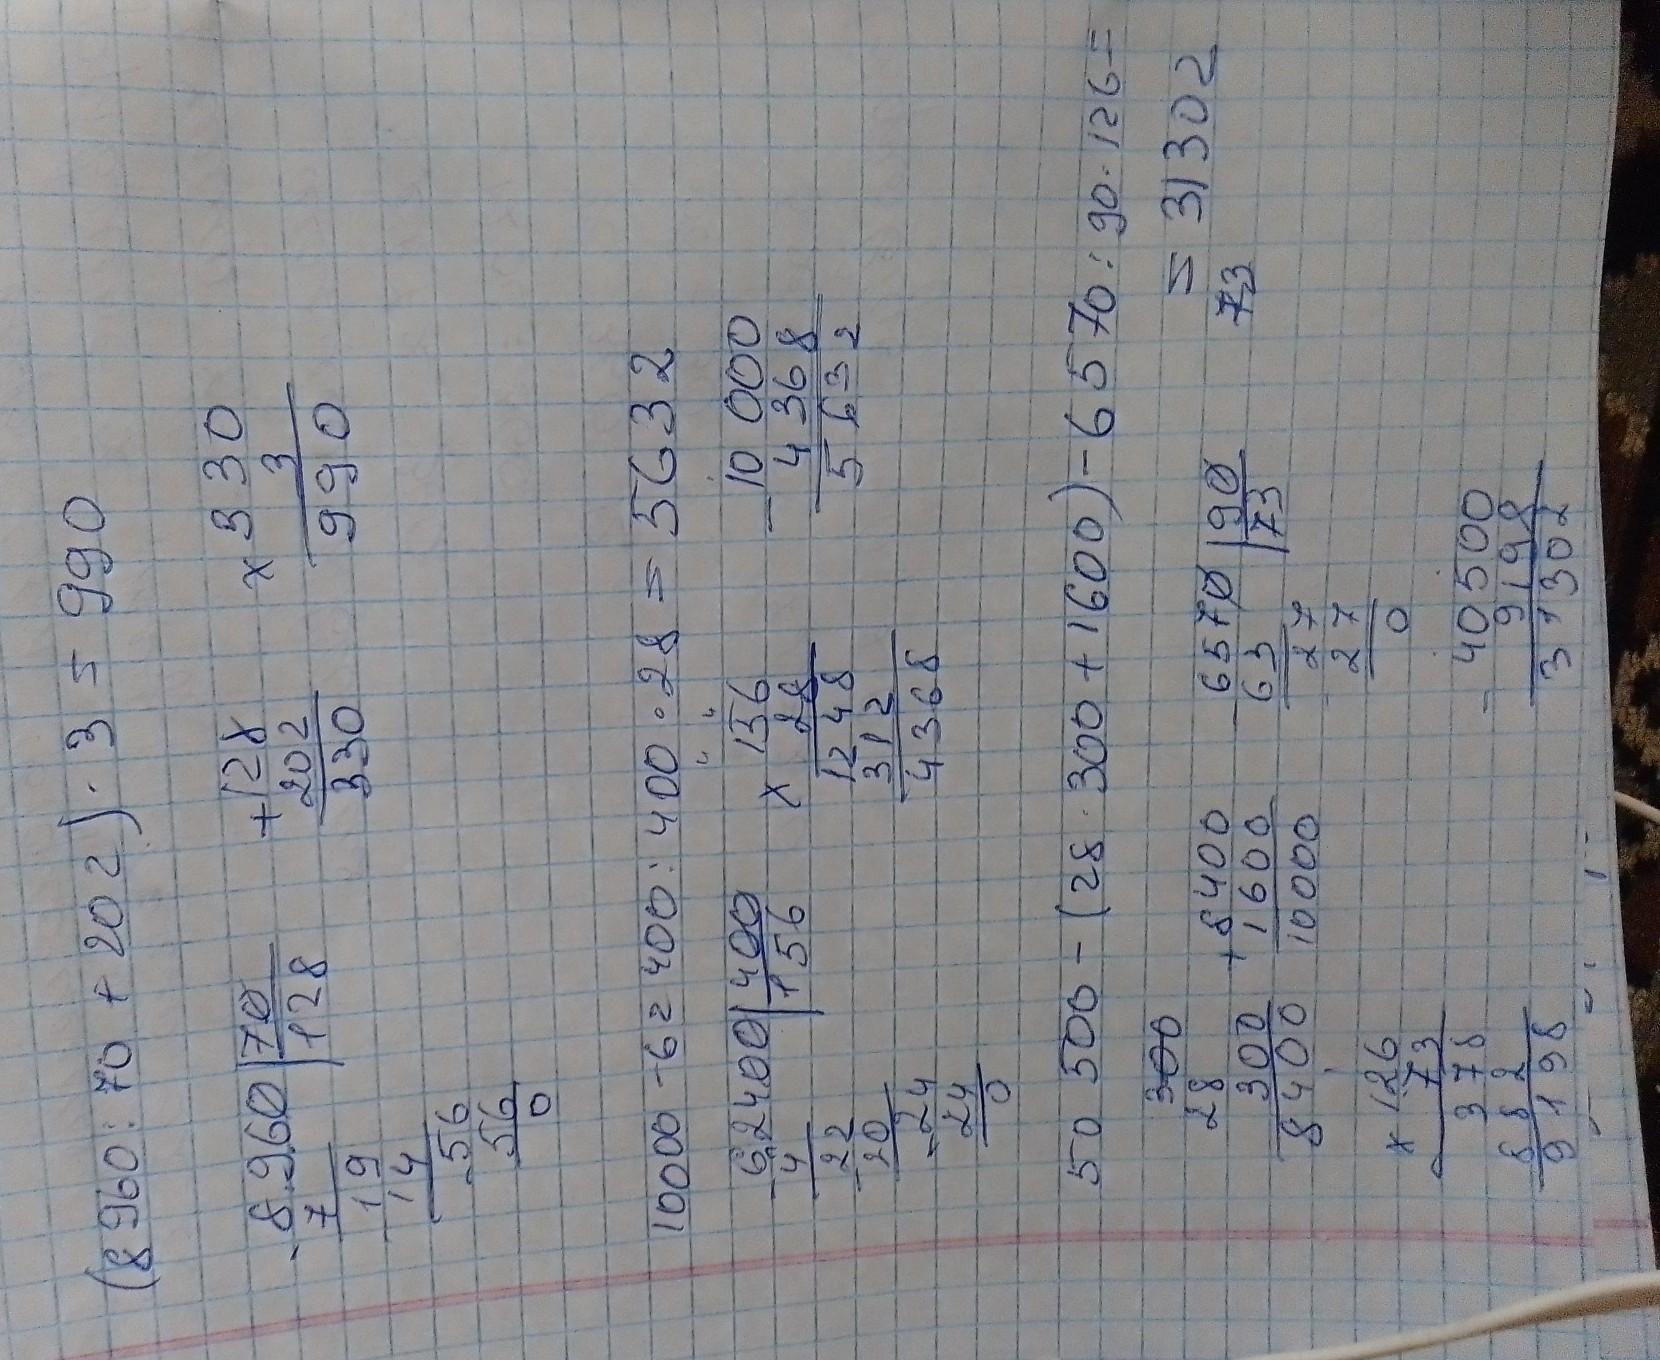 (8 960 : 70 + 202) · 3 = 990
- 8960 | 70   + 128   × 330
7   128   202   3
19   330   990
14
- 56
56
0
10000 - 62400 : 400 · 28 = 5632
- 62400 | 400   × 156   - 10 000
4   156   28   4 368
- 22   1248   5 632
20   312
- 24   4368
24
0
50 500 - (28 · 300 + 1600) - 6570 : 90 · 126 =
= 31302
300   + 8400   - 6570 | 90   73
28   1600   63   73
300   10000   27
8400   27
0
× 126   - 40500
73   9198
378   31302
882
9198